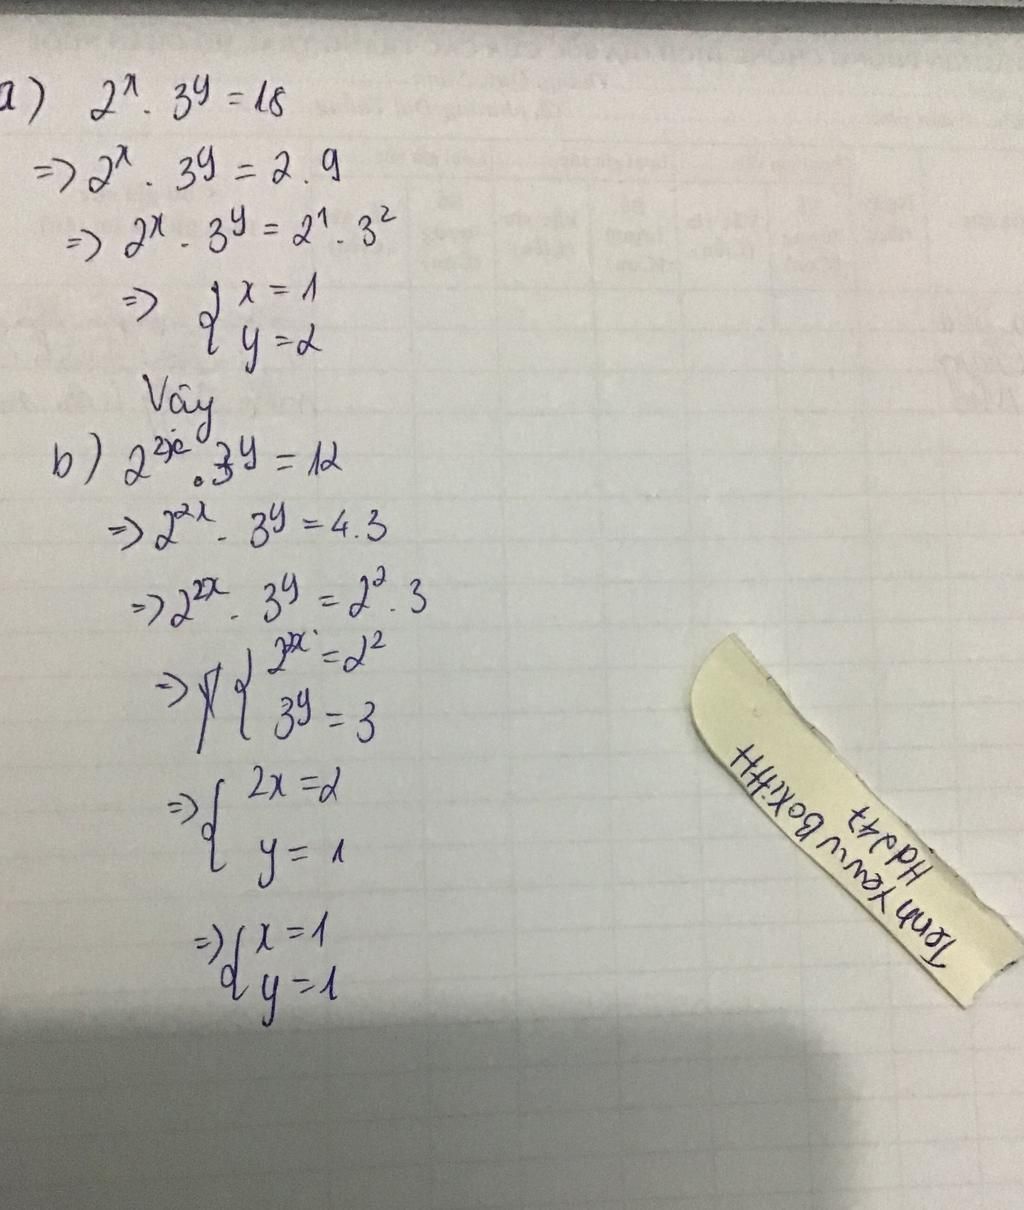 a) 2^x . 3^y = 18
=> 2^x . 3^y = 2 . 9
=> 2^x . 3^y = 2^1 . 3^2
=> { x = 1
y = 2
Vậy
b) 2^2x . 3^y = 12
=> 2^2x . 3^y = 4 . 3
=> 2^2x . 3^y = 2^2 . 3
=> { 2^2x = 2^2
3^y = 3
=> { 2x = 2
y = 1
=> { x = 1
y = 1
Hdg47